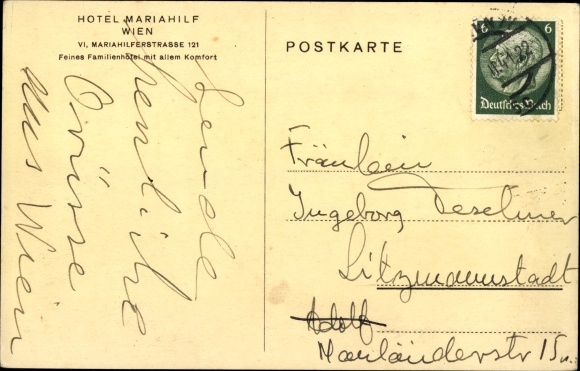 HOTEL MARIAHILF
WIEN
VI, MARIAHILFERSTRASSE 121
Feines Familienhotel mit allem Komfort
POSTKARTE
6 6
Deutsches Reich
22
Sende
herzliche
Grüsse
aus Wien
Fräulein
Ingeborg
Litzmannstadt
Adolf
15